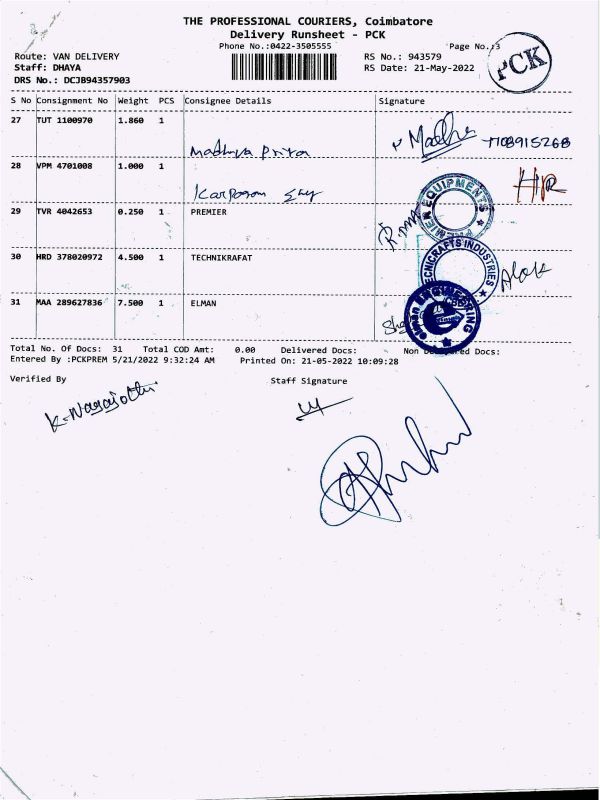 THE PROFESSIONAL COURIERS, Coimbatore
Delivery Runsheet - PCK
Phone No.:0422-3505555 Page No.:3
Route: VAN DELIVERY RS No.: 943579
Staff: DHAYA RS Date: 21-May-2022
DRS No.: DCJB94357903
PCK
S No Consignment No Weight PCS Consignee Details Signature
27 TUT 1100970 1.860 1
Madhuya Priya Madhu
28 VPM 4701008 1.000 1
Karpagam HR
29 TVR 4042653 0.250 1 PREMIER
PREMIER EQUIPMENTS
30 HRD 378020972 4.500 1 TECHNIKRAFAT
TECHNICRAFTS INDUSTRIES Alok
31 MAA 289627836 7.500 1 ELMAN
ENGINEERING
Total No. Of Docs: 31 Total COD Amt: 0.00 Delivered Docs: Non Delivered Docs:
Entered By :PCKPREM 5/21/2022 9:32:24 AM Printed On: 21-05-2022 10:09:28
Verified By Staff Signature
K. Nagajothi